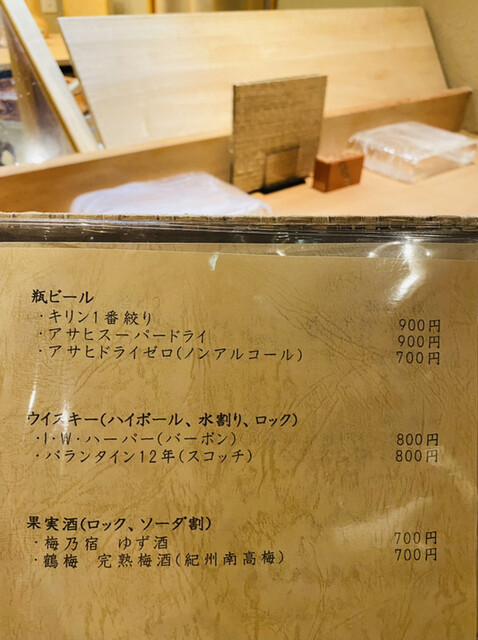 瓶ビール
・キリン1番絞り 900円
・アサヒスーパードライ 900円
・アサヒドライゼロ(ノンアルコール) 700円
ウイスキー(ハイボール、水割り、ロック)
・I・W・ハーパー(バーボン) 800円
・バランタイン12年(スコッチ) 800円
果実酒(ロック、ソーダ割)
・梅乃宿 ゆず酒 700円
・鶴梅 完熟梅酒(紀州南高梅) 700円